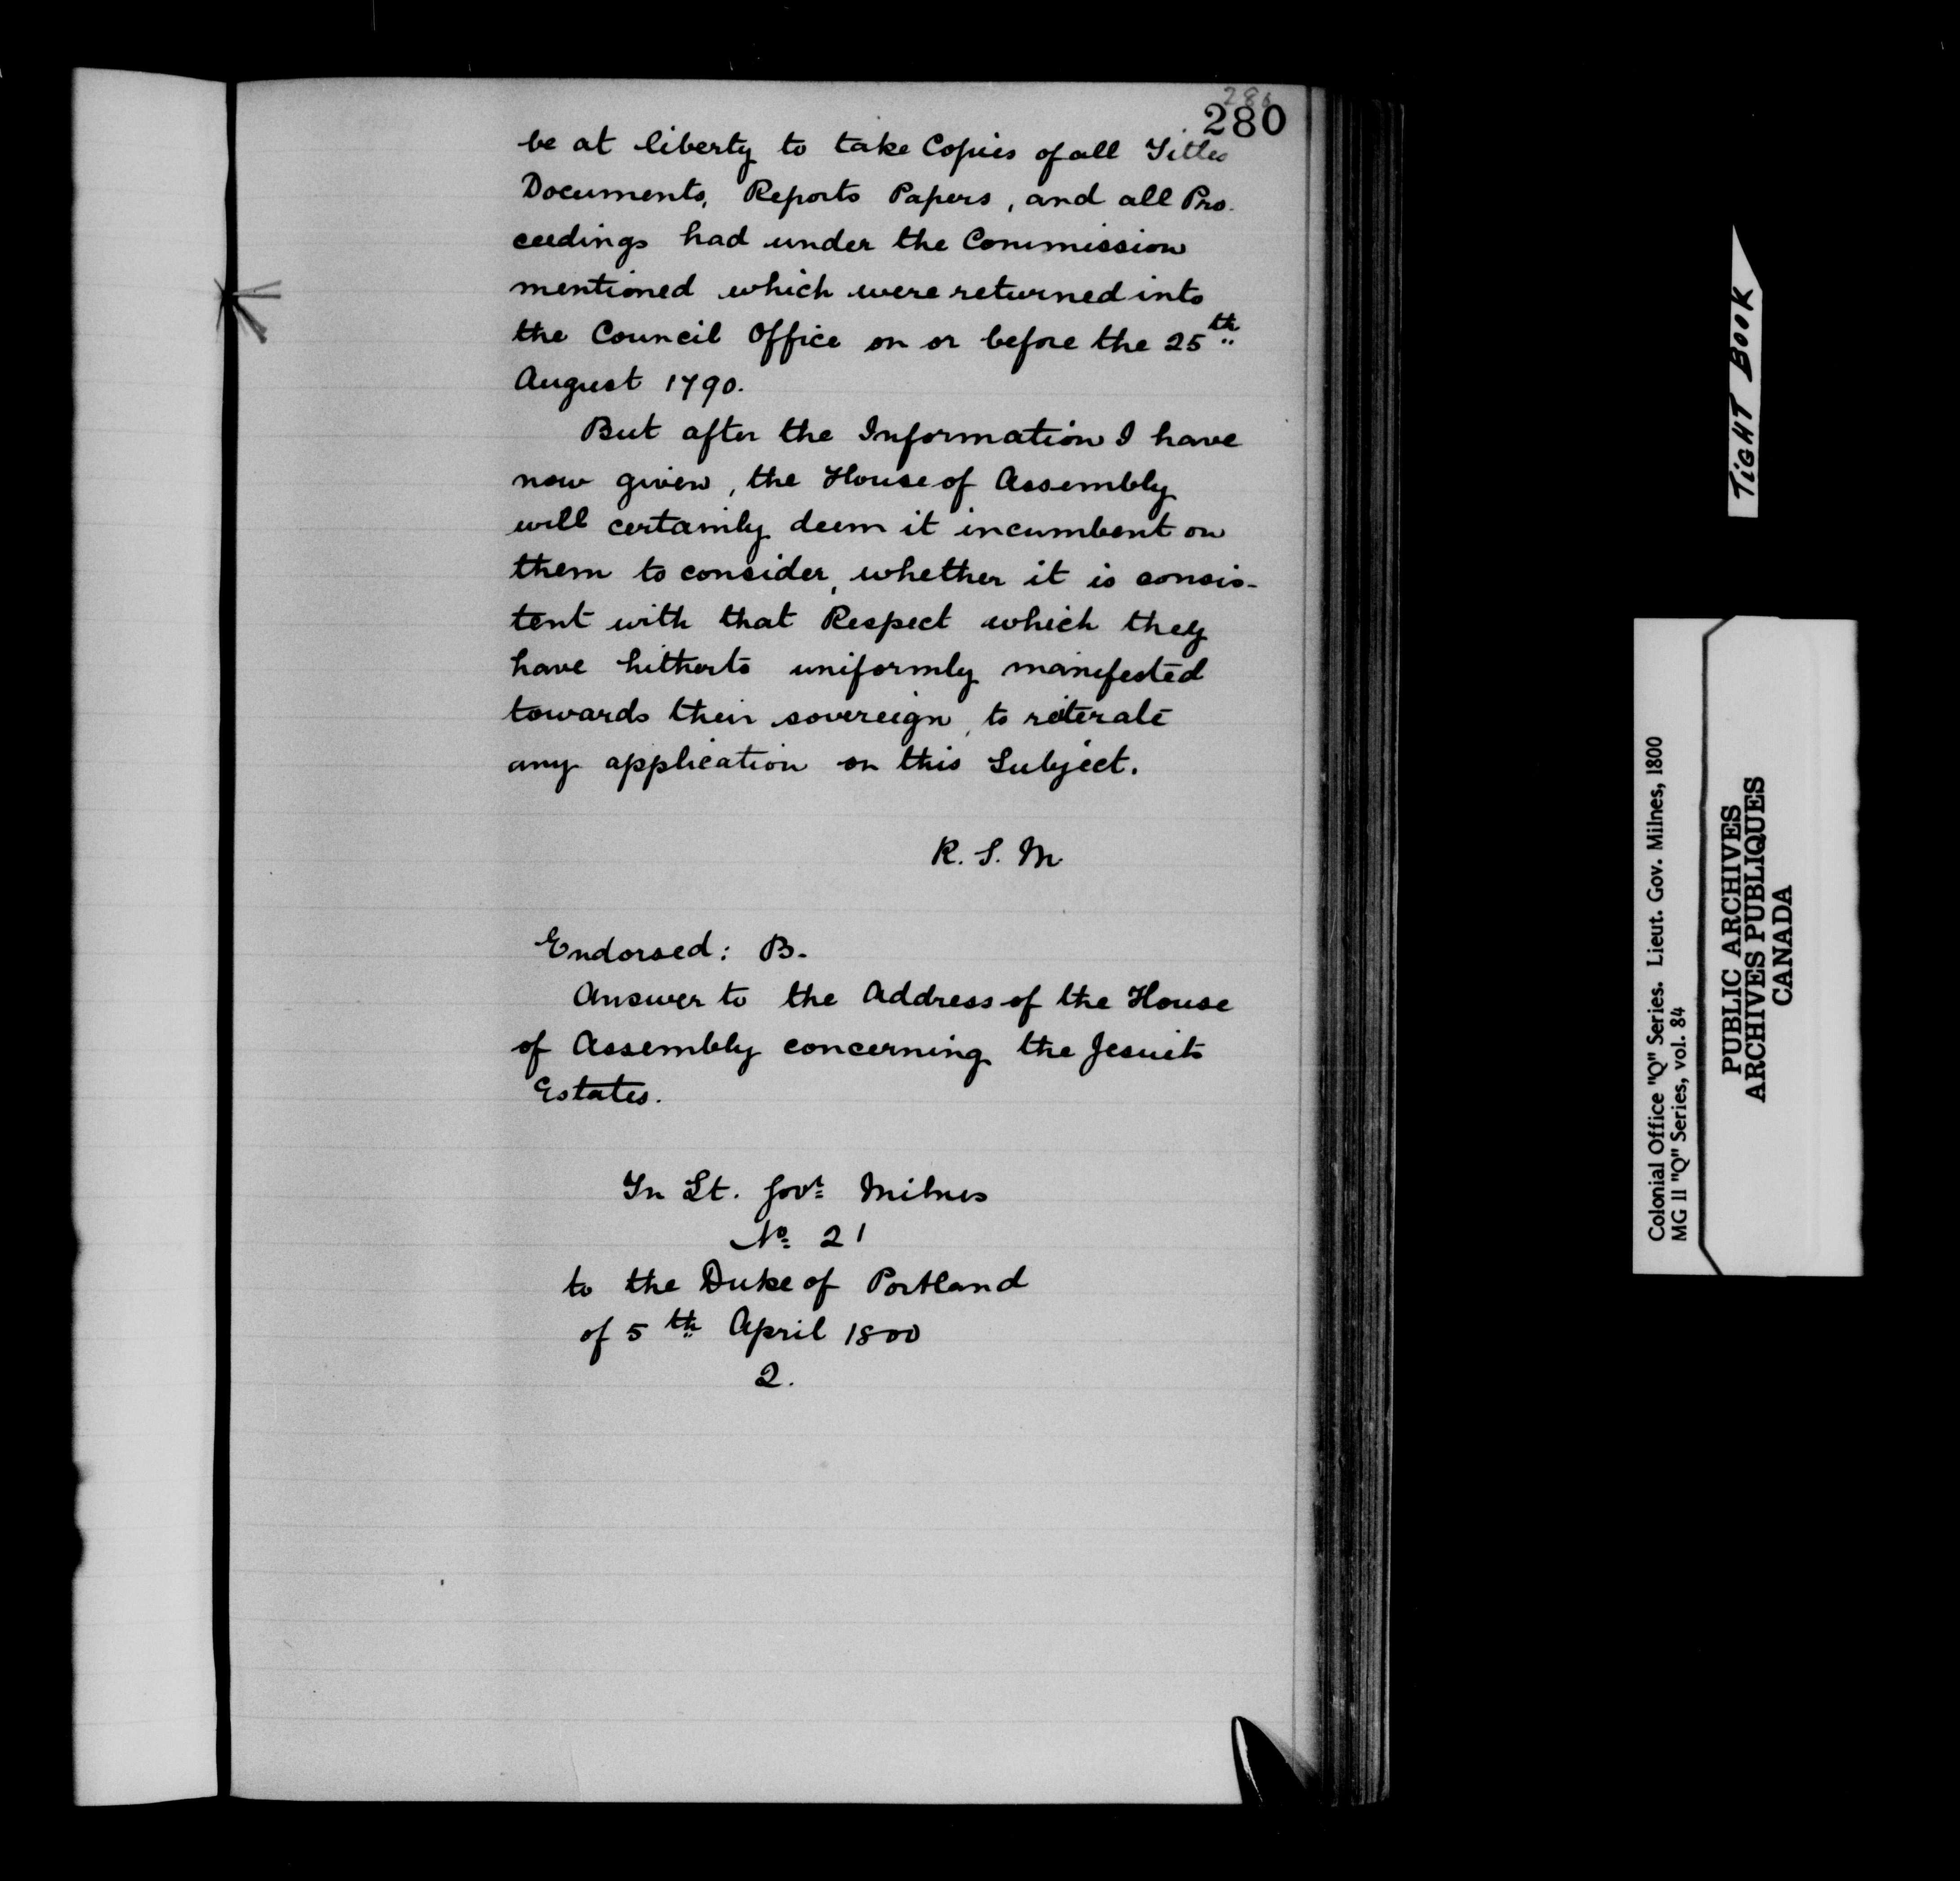 280
280
be at liberty to take Copies of all Titles
Documents, Reports Papers, and all Pro-
ceedings had under the Commission
mentioned which were returned into
the Council Office on or before the 25th
August 1790.
But after the Information I have
now given, the House of Assembly
will certainly deem it incumbent on
them to consider, whether it is consis-
tent with that Respect which they
have hitherto uniformly manifested
towards their sovereign, to reiterate
any application on this Subject.
R. S. M
Endorsed: B.
Answer to the Address of the House
of Assembly concerning the Jesuits
Estates.
In Lt. Govr Milnes
No 21
to the Duke of Portland
of 5th April 1800
2.
TIGHT BOOK
Colonial Office "Q" Series. Lieut. Gov. Milnes, 1800
MG 11 "Q" Series, vol. 84
PUBLIC ARCHIVES
ARCHIVES PUBLIQUES
CANADA